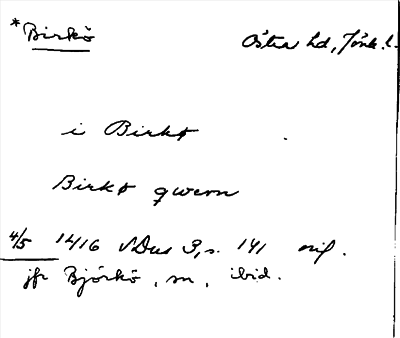 *Birkö Östra hd, Jönk. l.
i Birkø
Birkø qwern
4/5 1416 SDns 3, s. 141 orig.
jfr Björkö, sn, ibid.